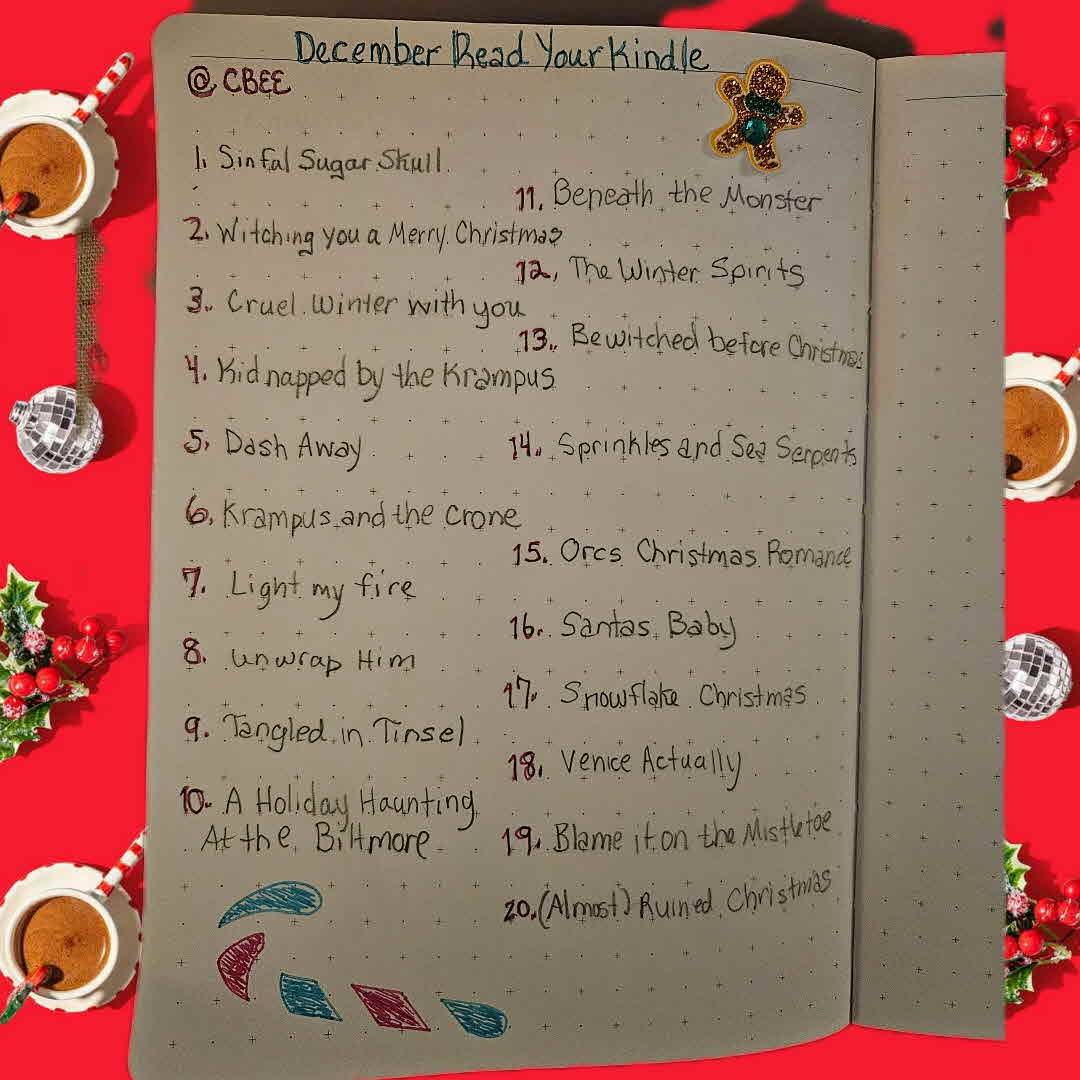 December Read Your Kindle
@CBEE
1. Sinful Sugar Skull
2. Witching you a Merry Christmas
3. Cruel Winter with you
4. Kidnapped by the Krampus
5. Dash Away
6. Krampus and the Crone
7. Light my fire
8. Unwrap Him
9. Tangled in Tinsel
10. A Holiday Haunting
At the Biltmore
11. Beneath the Monster
12. The Winter Spirits
13. Bewitched before Christmas
14. Sprinkles and Sea Serpents
15. Orcs Christmas Romance
16. Santas Baby
17. Snowflake Christmas
18. Venice Actually
19. Blame it on the Mistletoe
20. (Almost) Ruined Christmas